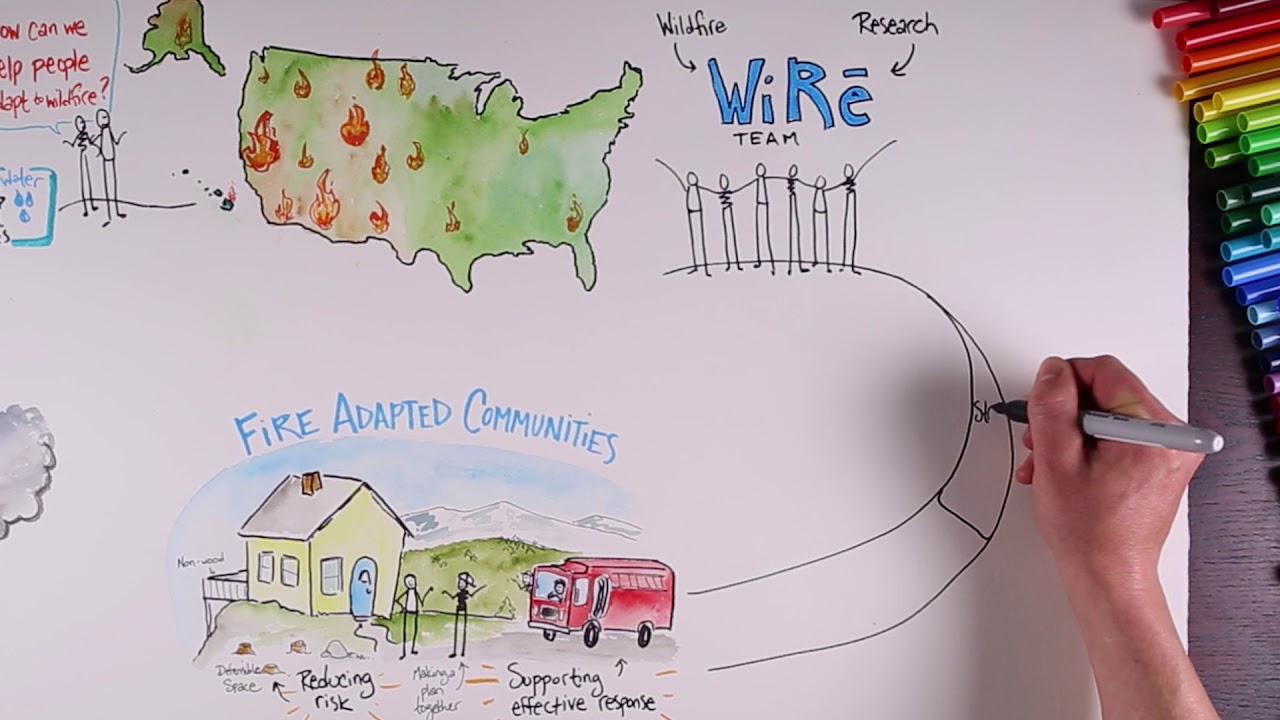 ow can we
elp people
dapt to wildfire?
water
?
s
Wildfire
Research
WiRē
TEAM
St
FiRE ADAPTED COMMUNiTiES
Non-wood
Defensible
Space
Reducing
risk
Making a
plan
together
Supporting
effective response